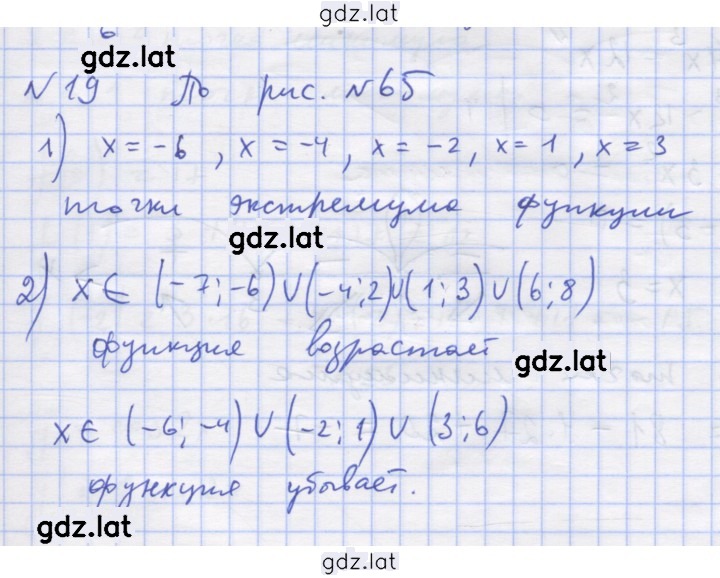 gdz.lat
gdz.lat
№19 По рис. №65
1) x = -6, x = -4, x = -2, x = 1, x = 3
точки экстремума функции
gdz.lat
2) x ∈ (-7; -6) ∪ (-4; 2) ∪ (1; 3) ∪ (6; 8)
функция возрастает
gdz.lat
x ∈ (-6; -4) ∪ (-2; 1) ∪ (3; 6)
функция убывает.
gdz.lat
gdz.lat